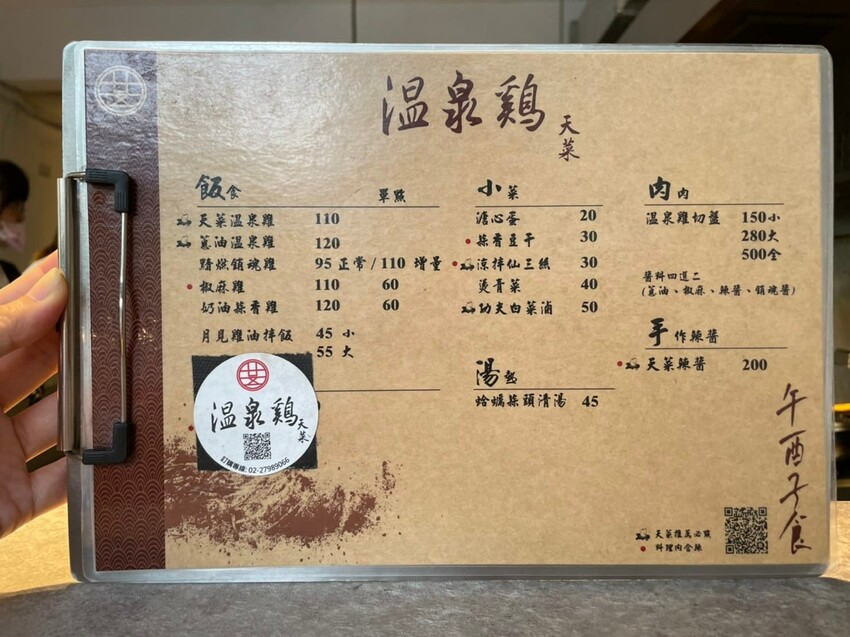 温泉鷄
天菜
飯食 單點
天菜溫泉雞 110
蔥油溫泉雞 120
黯然銷魂雞 95 正常 / 110 增量
椒麻雞 110 60
奶油蒜香雞 120 60
月見雞油拌飯 45 小
55 大
小菜
溏心蛋 20
蒜香豆干 30
涼拌仙三絲 30
燙青菜 40
功夫白菜滷 50
湯
蛤蠣蒜頭清湯 45
肉肉
溫泉雞切盤 150小
280大
500全
醬料四選二
(蔥油、椒麻、辣醬、銷魂醬)
手作辣醬
天菜辣醬 200
温泉鷄
天菜
訂購專線: 02-27989066
午酉子食
天菜推薦必點
料理內含辣